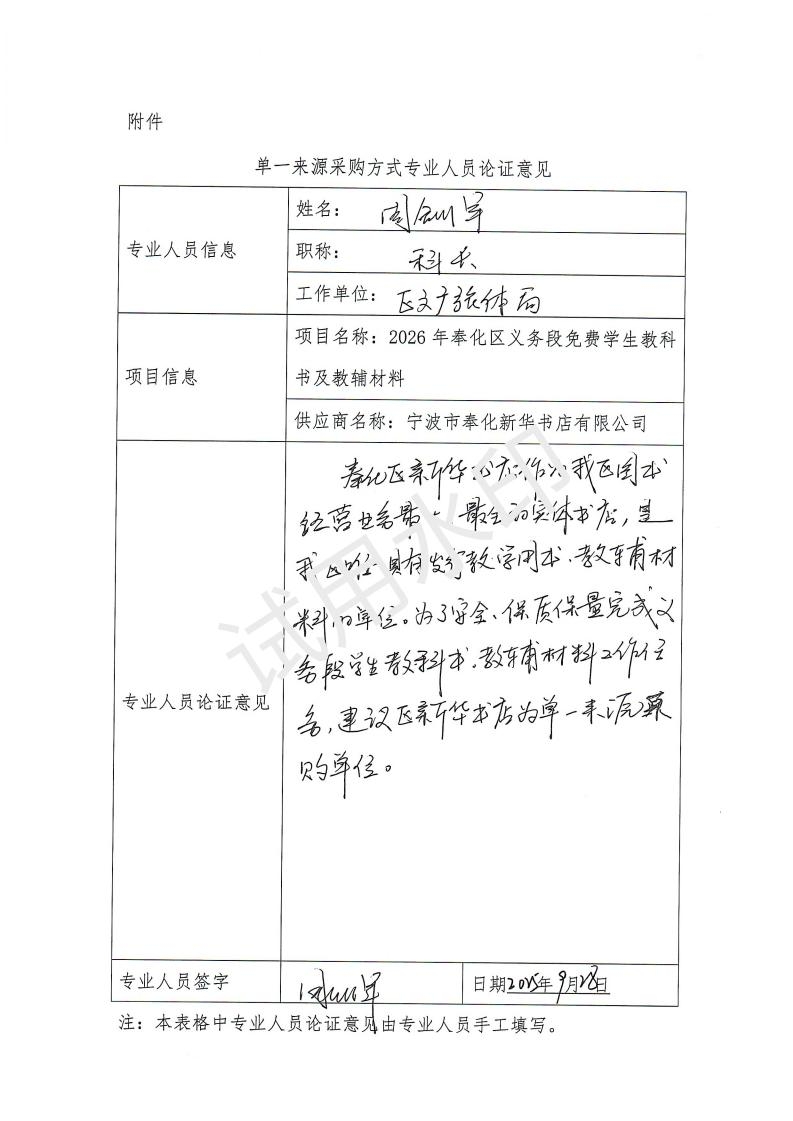 附件
单一来源采购方式专业人员论证意见
专业人员信息
姓名：
职称：科长
工作单位：区文广旅体局
项目信息
项目名称：2026 年奉化区义务段免费学生教科
书及教辅材料
供应商名称：宁波市奉化新华书店有限公司
专业人员论证意见
奉化区新华书店作为我区图书
经营业务最大、最全的实体书店，是
我区唯一具有发行教学用书、教辅材
料的单位。为了安全、保质保量完成义
务段学生教科书、教辅材料工作任
务，建议区新华书店为单一来源采
购单位。
专业人员签字
日期2025年9月28日
注：本表格中专业人员论证意见由专业人员手工填写。
试用水印